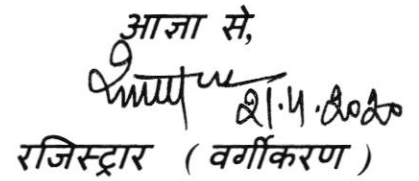 आज्ञा से,
21.4.2020
रजिस्ट्रार ( वर्गीकरण )